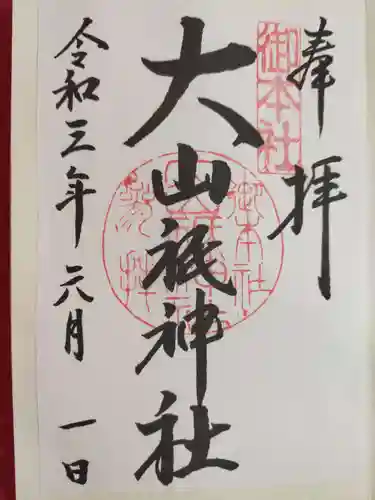 奉拝
御本社
大山祇神社
令和三年六月一日